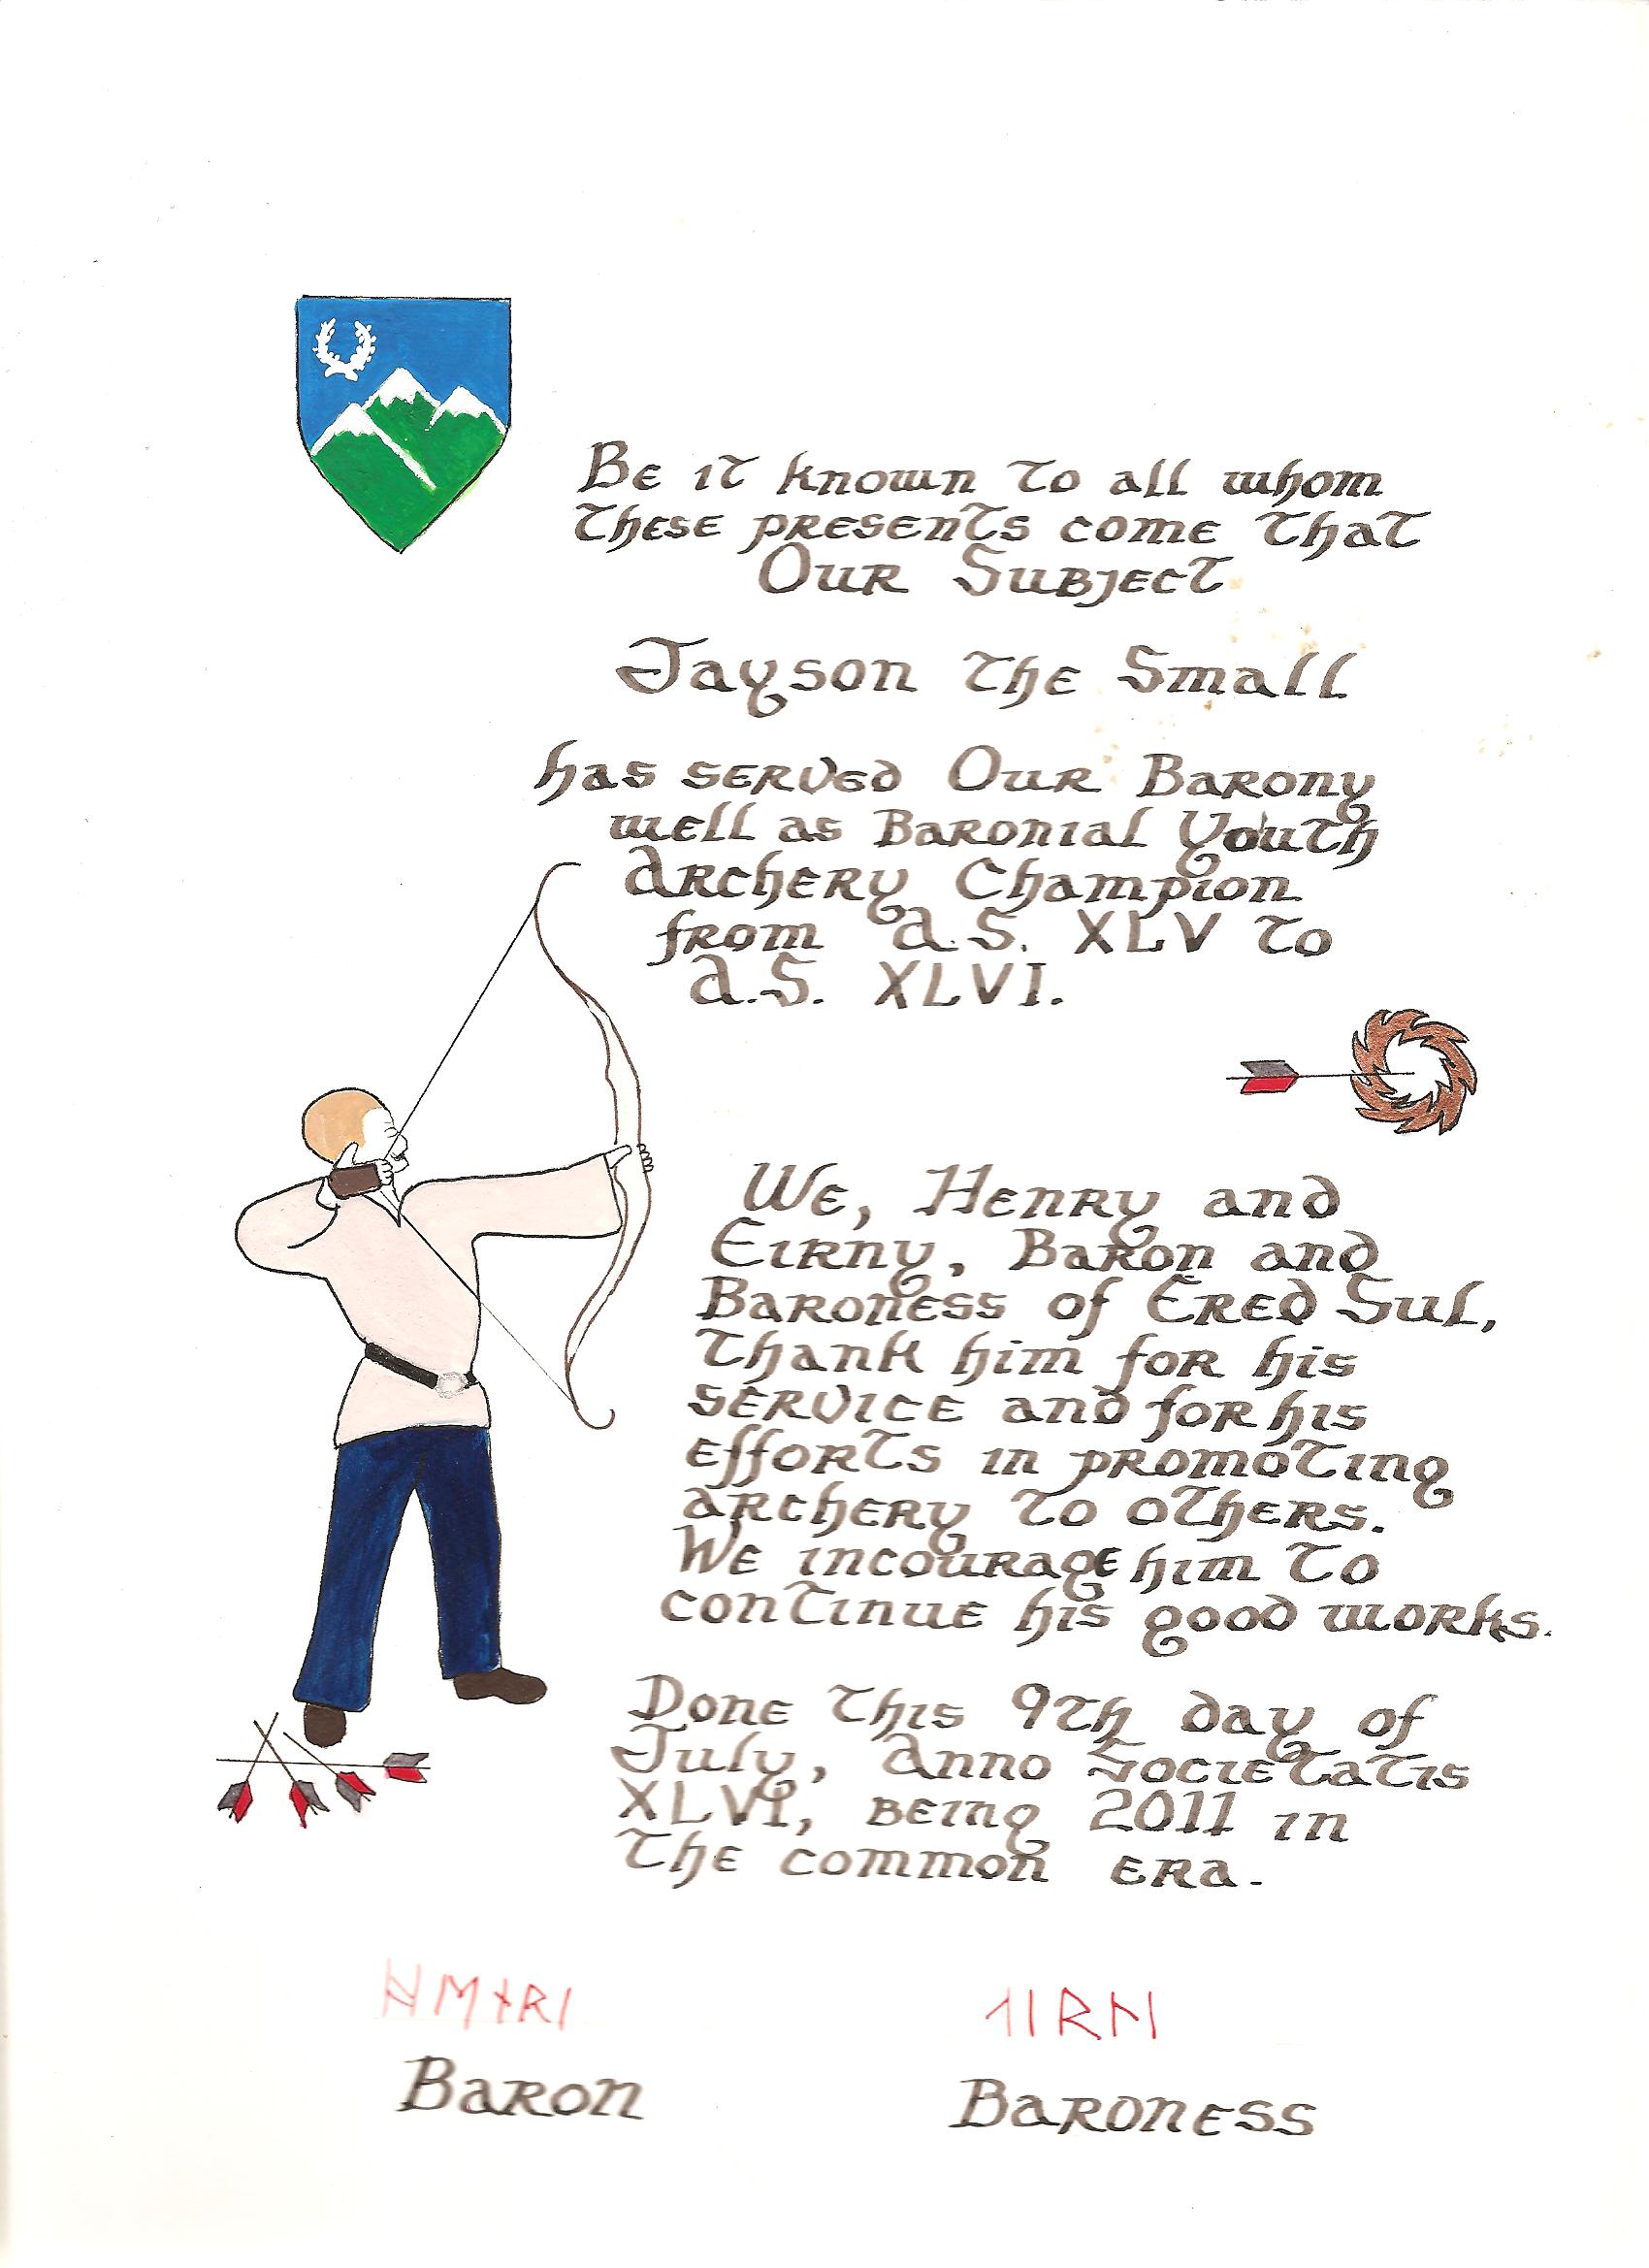 Be it known to all whom
these presents come that
Our Subject
Jayson the Small
has served Our Barony
well as Baronial Youth
Archery Champion
from A.S. XLV to
A.S. XLVI.
We, Henry and
Eirny, Baron and
Baroness of Ered Sul,
thank him for his
service and for his
efforts in promoting
archery to others.
We incourage him to
continue his good works.
Done this 9th day of
July, Anno Societatis
XLVI, being 2011 in
the common era.
Baron
Baroness